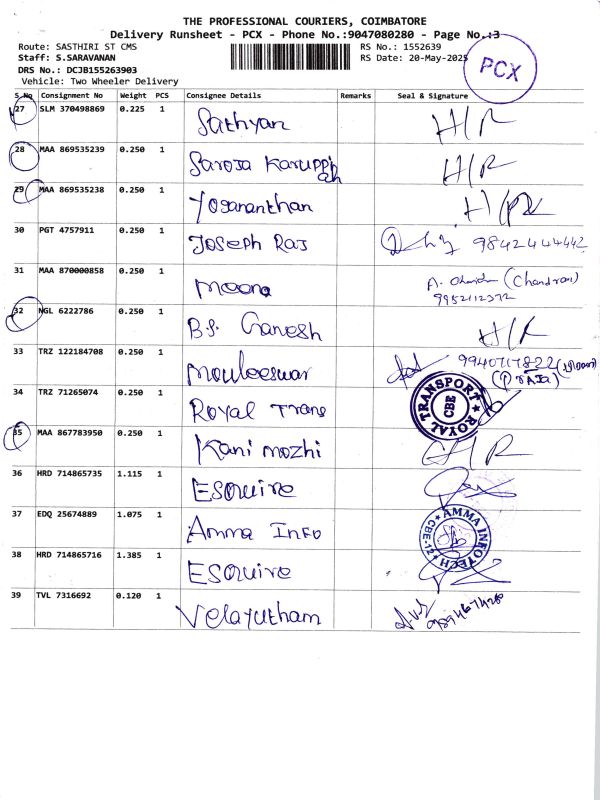 THE PROFESSIONAL COURIERS, COIMBATORE
Delivery Runsheet - PCX - Phone No.:9047080280 - Page No.:3
Route: SASTHIRI ST CMS RS No.: 1552639
Staff: S.SARAVANAN RS Date: 20-May-2025
DRS No.: DCJB155263903
Vehicle: Two Wheeler Delivery
PCX
S.No Consignment No Weight PCS Consignee Details Remarks Seal & Signature
27 SLM 370498869 0.225 1 Sathyan H/R
28 MAA 869535239 0.250 1 Saroja Karupp H/R
ah
29 MAA 869535238 0.250 1 Yogananthan H/R
30 PGT 4757911 0.250 1 Joseph Raj 9842444442
31 MAA 870000858 0.250 1 (Chandran)
9952112372
32 NGL 6222786 0.250 1 B.S. Ganesh H/R
33 TRZ 122184708 0.250 1 Mouleeswar
34 TRZ 71265074 0.250 1 Royal Trans ROYAL TRANSPORT CBE
35 MAA 867783950 0.250 1 Kani mozhi H/R
36 HRD 714865735 1.115 1 Esquire
37 EDQ 25674889 1.075 1 Amma Info AMMA INFOTECH CBE-12
38 HRD 714865716 1.385 1 Esquire
39 TVL 7316692 0.120 1 Velayutham